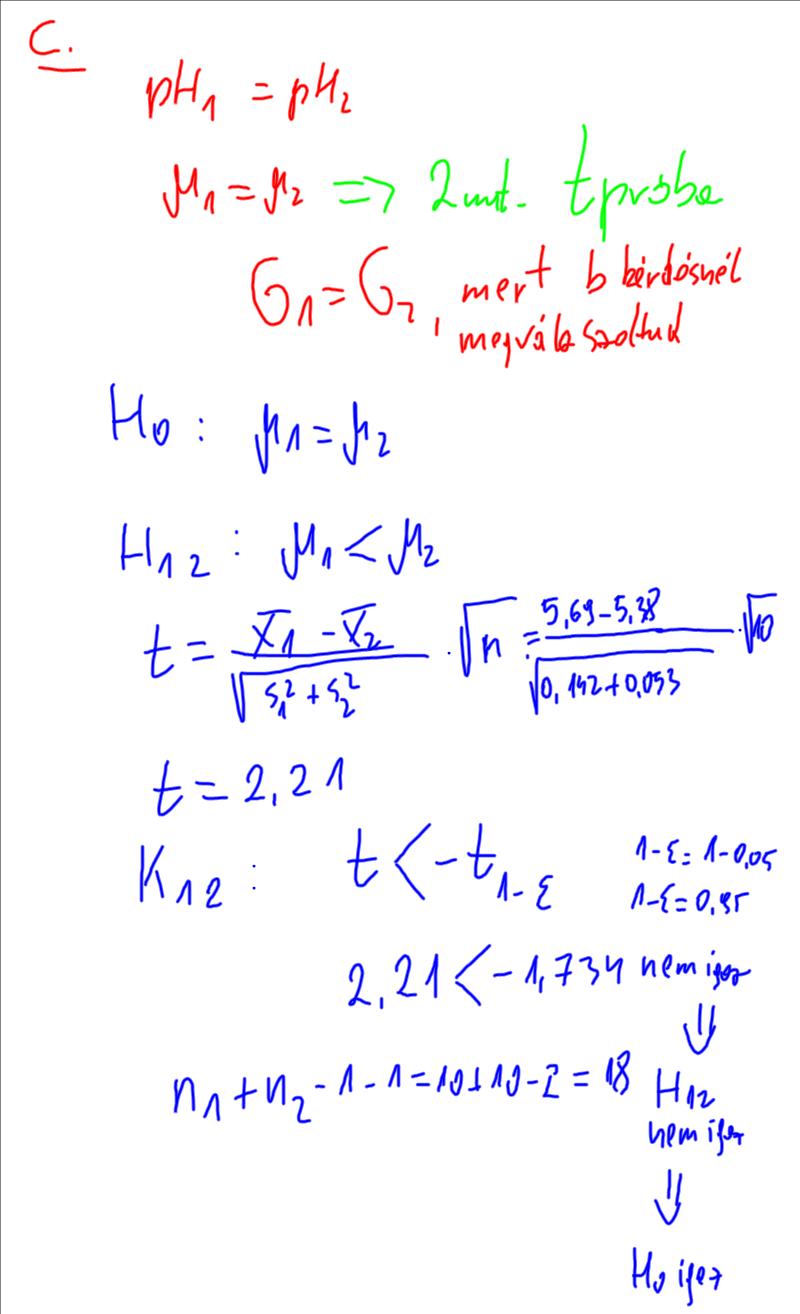 C.
pH₁ = pH₂
μ₁ = μ₂ => 2 mt. t próba
σ₁ = σ₂, mert b kérdésnél
megválaszoltuk
H₀ : μ₁ = μ₂
H₁₂ : μ₁ < μ₂
t = (x̄₁ - x̄₂) / √(s₁² + s₂²) · √n = (5,69 - 5,38) / √(0,142 + 0,053) · √10
t = 2,21
K₁₂ : t < -t₁₋ε
1-ε = 1-0,05
1-ε = 0,95
2,21 < -1,734 nem igaz
⇓
n₁ + n₂ - 1 - 1 = 10 + 10 - 2 = 18
H₁₂
nem igaz
⇓
H₀ igaz